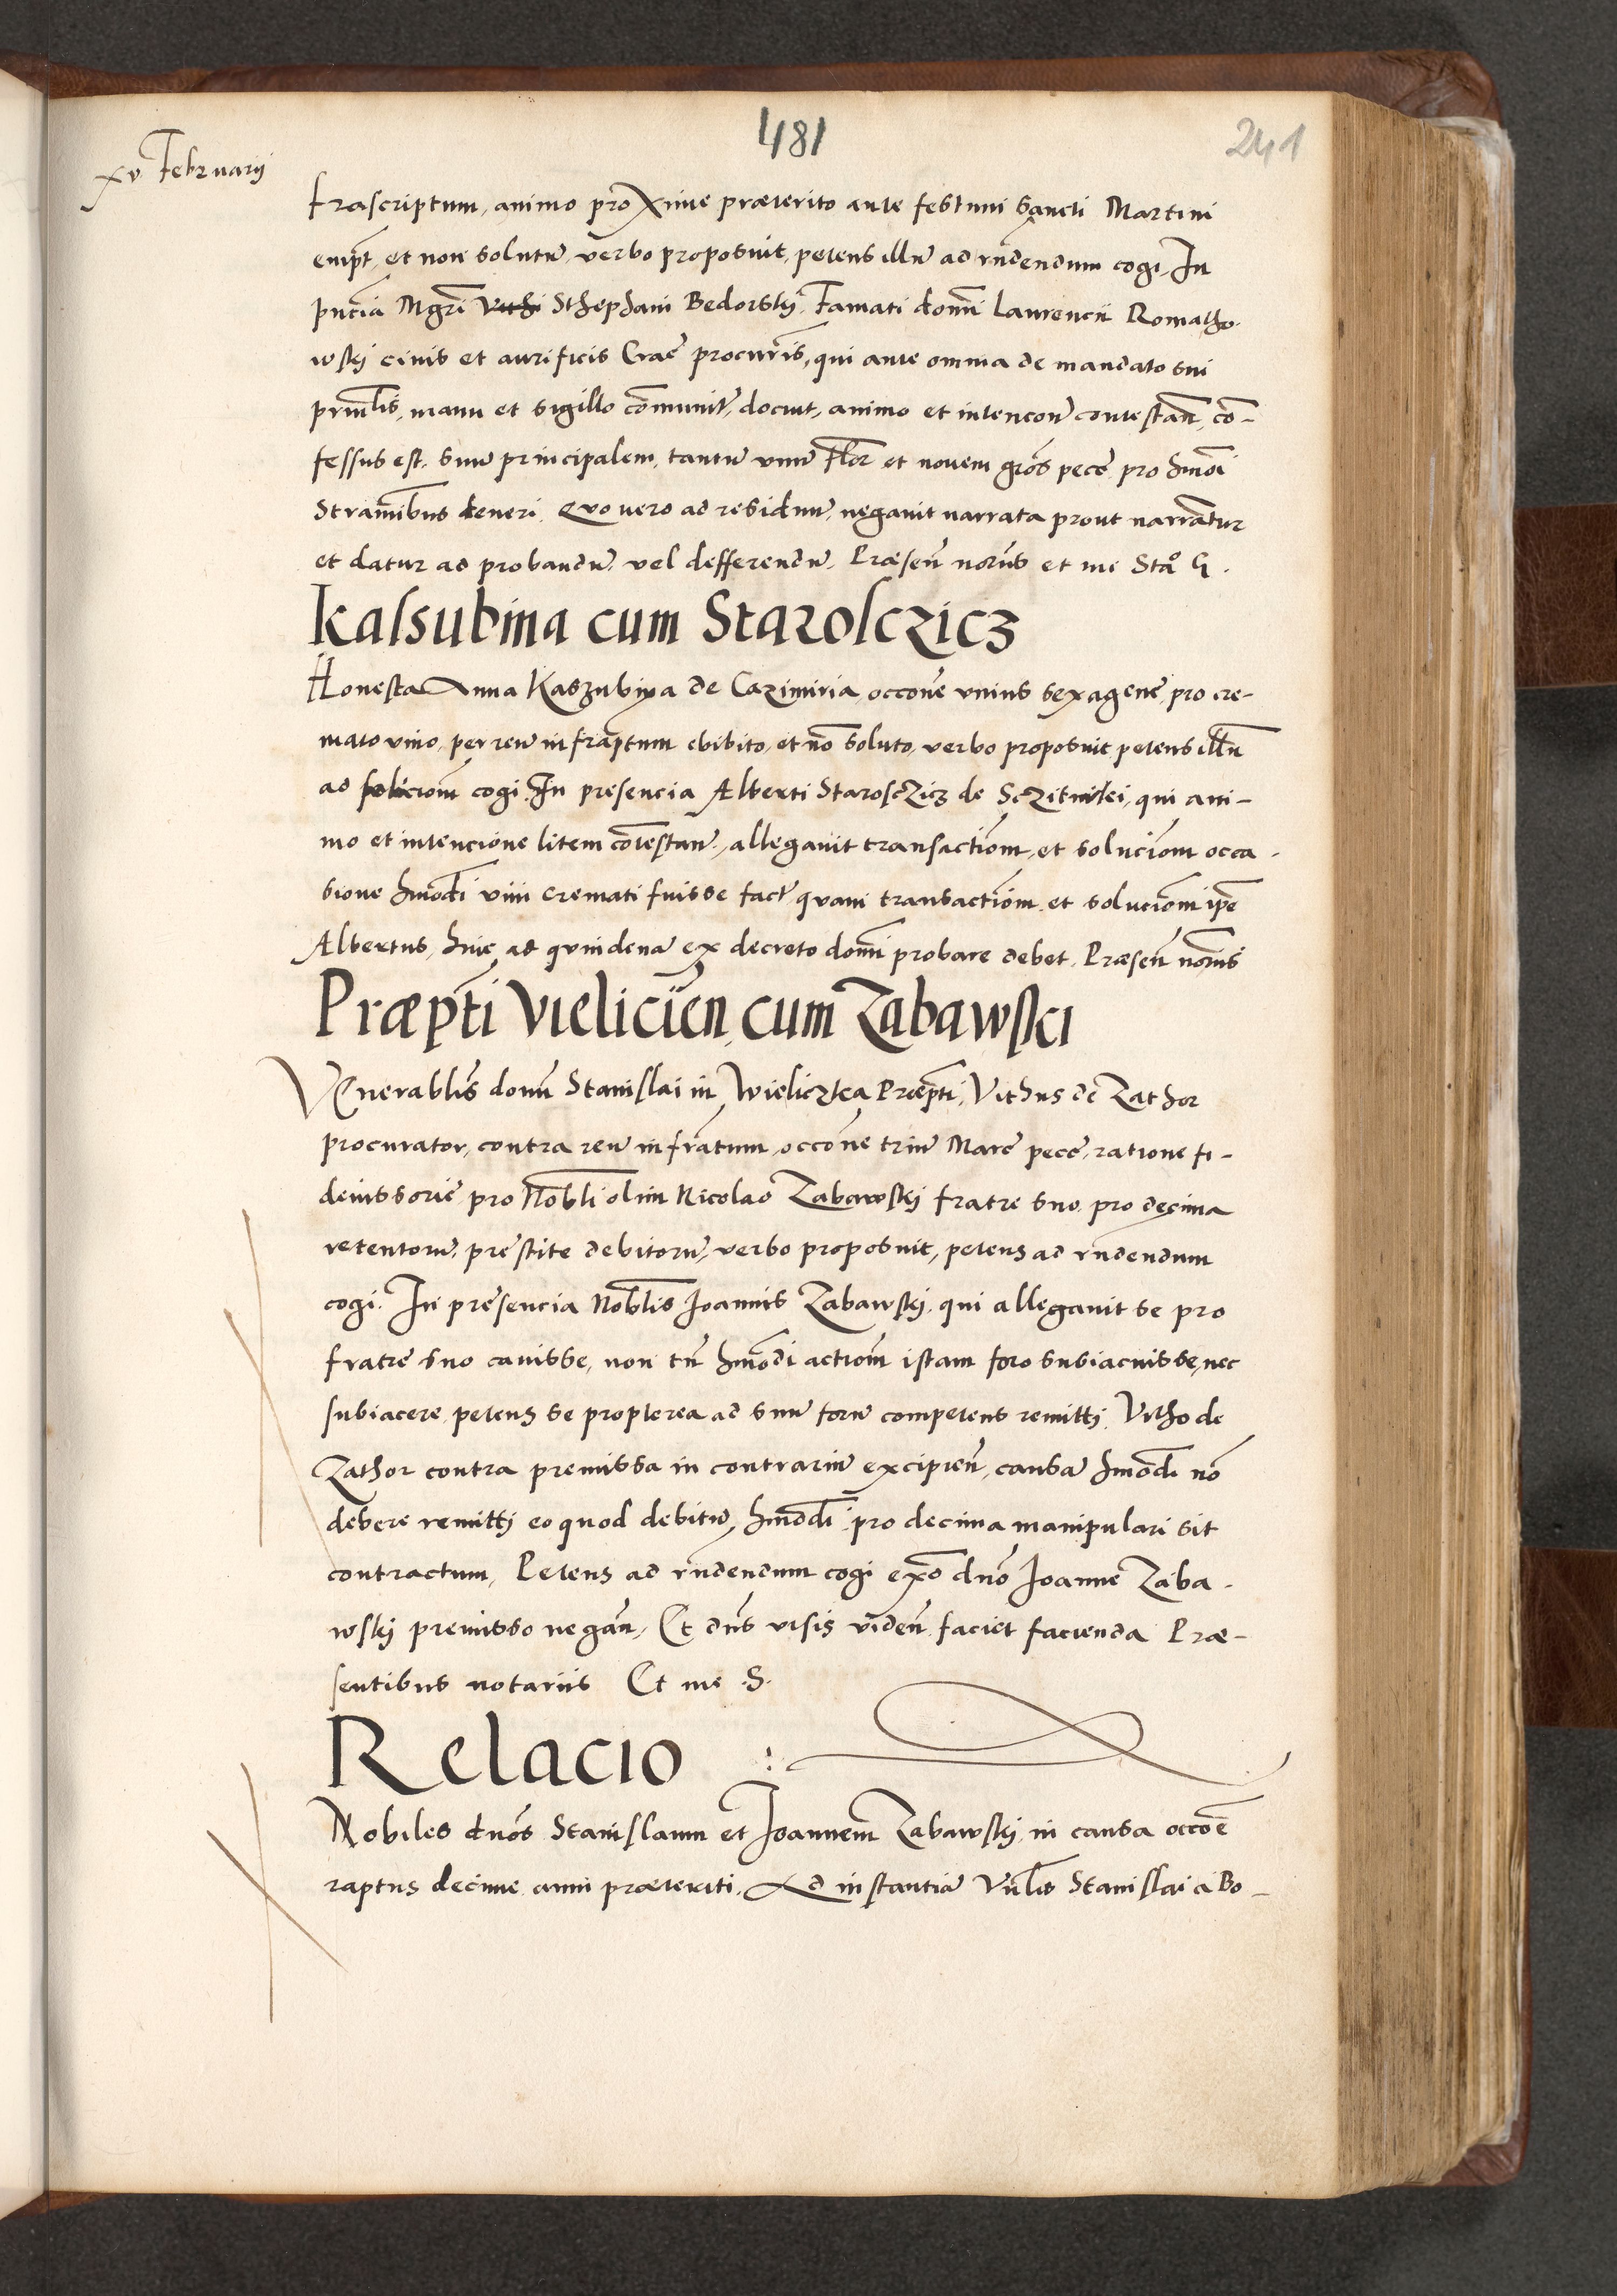 481
241
xv Februarij
frascriptum, animo proxime præterito ante festum Sancti Martini
empt̄, et non solutū, verbo proposuit, petens illū ad rn̄dendum cogi, In
pn̄tia Mgr̄i Vithi Sthephani Bedorski, Famati domī Laurencii Romatho-
wskj civis et aurificis Crac̄ procur̄is, qui ante omnia de mandato sui
prīn̄lis, manu et sigillo com̄unit̄, docuit, animo et intencon̄ contestan̄, cō-
fessus est, suū principalem, tantū vnū Flor̄ et novem gros̄ pecc̄ pro hmōi
Stramībus teneri. Quo vero ad residuū, negavit narrata prout narrantur
et datur ad probandū, vel defferendū, Præsen̄ notr̄iis et me Sta͞o G.
Kassubina cum Starosczicz
Honesta Anna Kaszubina de Cazimiria, occōne vnius sexagene, pro cre-
mato vino, per reū infrāptum ebibito, et nō soluto, verbo proposuit petens illū
ad soluciom̄ cogi. In presencia Alberti Starosczicz de Sczitniki, qui ani-
mo et intencione litem cōtestan̄, allegavit transactiom̄, et soluciom̄ occa-
sione hmodī vini cremati fuisse factā quam transactiom̄, et soluciom̄ ipse
Albertus, hinc ad quindenā ex decreto domī probare debet, Præsen̄ notr̄iis
Præp̄ti Vielicien̄ cum Zabawski
Venerabl̄is domī Stanislai in Wieliczka Præp̄ti, Vithus de Zathor
procurator, contra reū infrātum, occōne triū Marc̄ pecc̄, ratione fi-
deiussorie, pro Nobl̄i olim Nicolao Zabawskj fratre suo, pro decima
retentorū, prestite debitorū, verbo proposuit, petens ad rn̄dendum
cogi. In presencia Nobl̄is Joannis Zabawskj, qui allegavit se pro
fratre suo cavisse, non tn̄ hmodi actiom̄ istam foro subiacuisse, nec
subiacere, petens se propterea ad suū forū competens remitti. Vitho de
Zathor contra premissa in contrariū excipien̄, causā hmōdi nō
debere remitti eo quod debitū, hmodi pro decima manipulari sit
contractum, Petens ad rn̄dendum cogi ex͞o dn̄o Joanne Zaba-
wskj premisso negan̄, Et dn̄s visis viden̄ faciet facienda Præ-
sentibus notariis Et me .S.
Relacio
Nobiles dn̄os Stanislaum et Joannem Zabawskj in causa occōe
raptus decime anni præteriti, Ad instantiā Vn̄lis Stanislai a Bo-